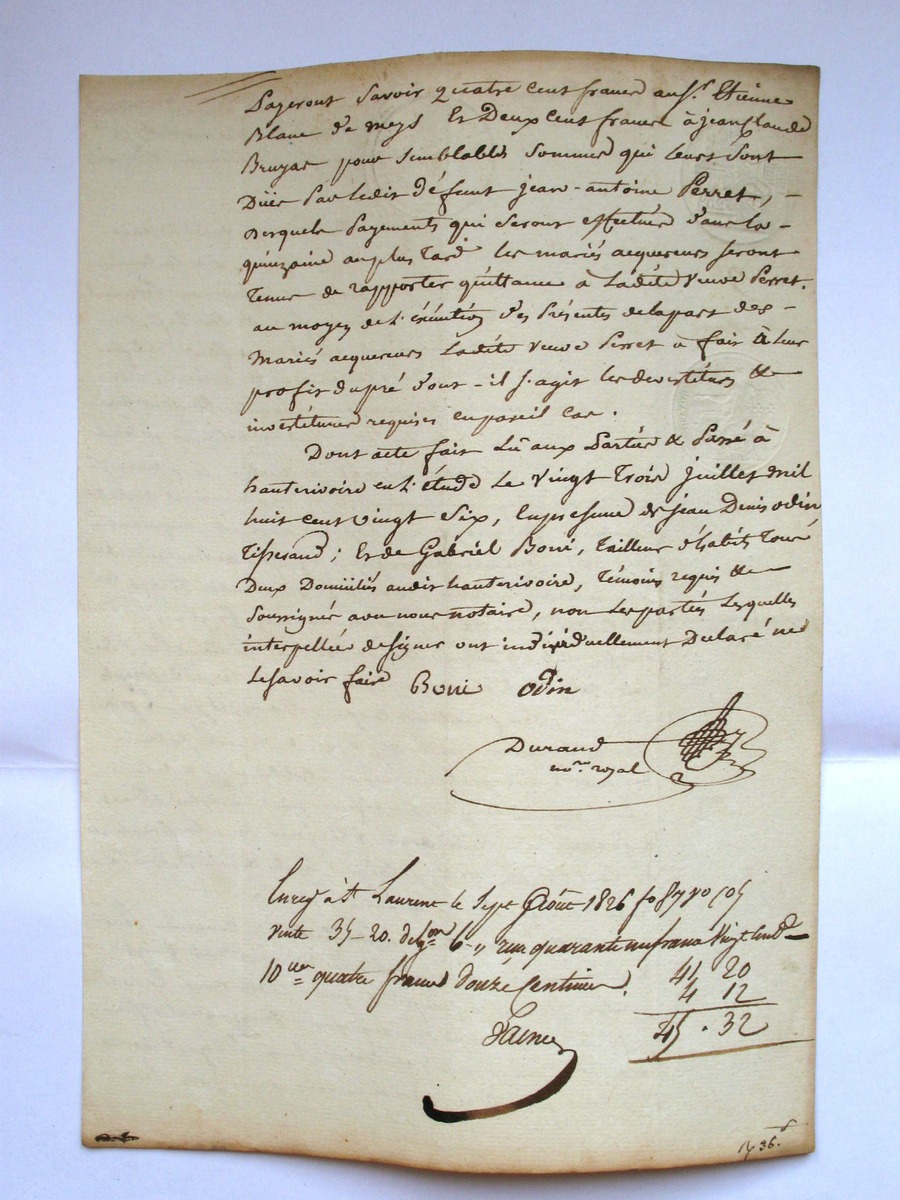 Payeront savoir quatre cent francs au sr. Etienne
Blanc de meys Et Deux cent francs à jean Claude
Bruyas pour semblables sommes qui leurs sont
Düés Par ledit défunt jean-antoine Perret, -
desquels Payements qui seront effectués dans la -
quinzaine au plus Tard les mariés acquereurs seront
Tenus de rapporter quittance à Ladite veuve Perret.
au moyen de L'éxécution des Présentes de la part des -
Mariés acquereurs Ladite veuve Perret a fait à leur
profit du pré dont - il s'agit les devestitures &
investitures requises en pareil cas.
Dont acte fait Lu aux Parties & Passé à
hauterivoire en L'étude Le vingt Trois juillet mil
huit cent vingt six, En presence de jean Denis odin
Tisserand; Et de Gabriel Boni, Tailleur d'habits Tous
Deux Domiciliés audit hauterivoire, Témoins requis &
Soussignés avec nous notaire, non Les parties Lesquelles
interpellées de signer ont individuellement Déclaré ne
Le savoir faire Boni odin
Durand
nore. royal
Enreg à St Laurent le Sept Août 1826 fo 87 vo
vente 35-20. 6-,, quarante un francs Vingt Cent
10me quatre francs douze Centimes. 41 20
4 12
45 . 32
36.